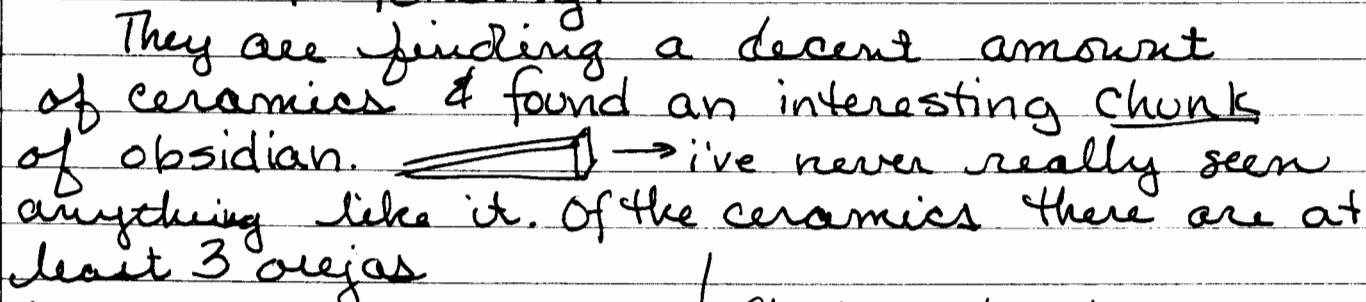 They are finding a decent amount
of ceramics & found an interesting chunk
of obsidian. → i've never really seen
anything like it. Of the ceramics there are at
least 3 orejas